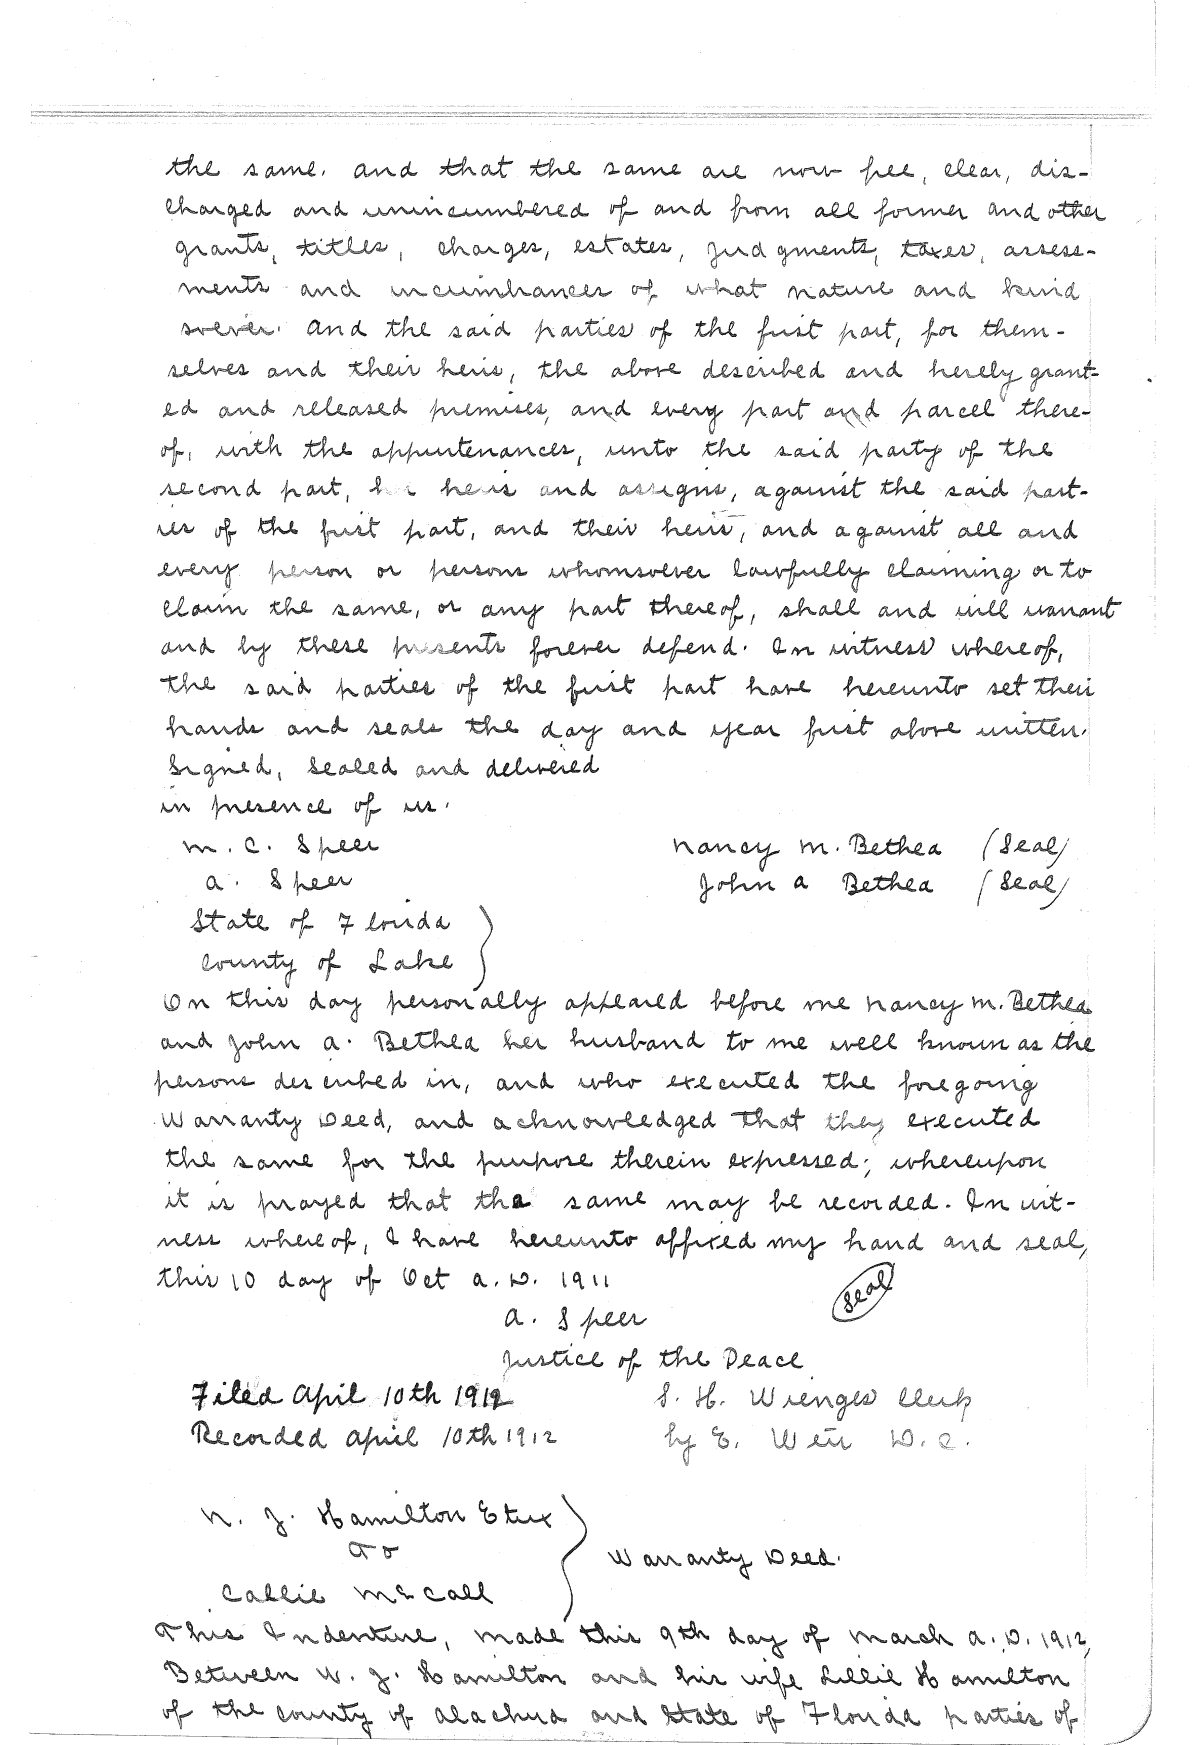 the same. and that the same are now free, clear, dis-
charged and unincumbered of and from all former and other
grants, titles, charges, estates, judgments, taxes, assess-
ments and incumbrances of what nature and kind
soever. And the said parties of the first part, for them-
selves and their heirs, the above described and hereby grant-
ed and released premises, and every part and parcel there-
of, with the appurtenances, unto the said party of the
second part, her heirs and assigns, against the said part-
ies of the first part, and their heirs, and against all and
every person or persons whomsoever lawfully claiming or to
claim the same, or any part thereof, shall and will warrant
and by these presents forever defend. In witness whereof,
the said parties of the first part have hereunto set their
hands and seals the day and year first above written.
Signed, Sealed and delivered
in presence of us.
M. C. Speer Nancy M. Bethea (Seal)
A. Speer John A Bethea (Seal)
State of Florida
County of Lake
On this day personally appeared before me Nancy M. Bethea
and John A. Bethea her husband to me well known as the
persons described in, and who executed the foregoing
Warranty Deed, and acknowledged that they executed
the same for the purpose therein expressed; whereupon
it is prayed that the same may be recorded. In wit-
ness whereof, I have hereunto affixed my hand and seal,
this 10 day of Oct A.D. 1911
Seal
A. Speer
Justice of the Peace
Filed April 10th 1912 S. H. Wienges Clerk
Recorded April 10th 1912 by E. Weir D.C.
W. J. Hamilton Etux
To
Warranty Deed.
Callie McCall
This Indenture, made this 9th day of March A.D. 1912,
Between W. J. Hamilton and his wife Lillie Hamilton
of the County of Alachua and State of Florida parties of